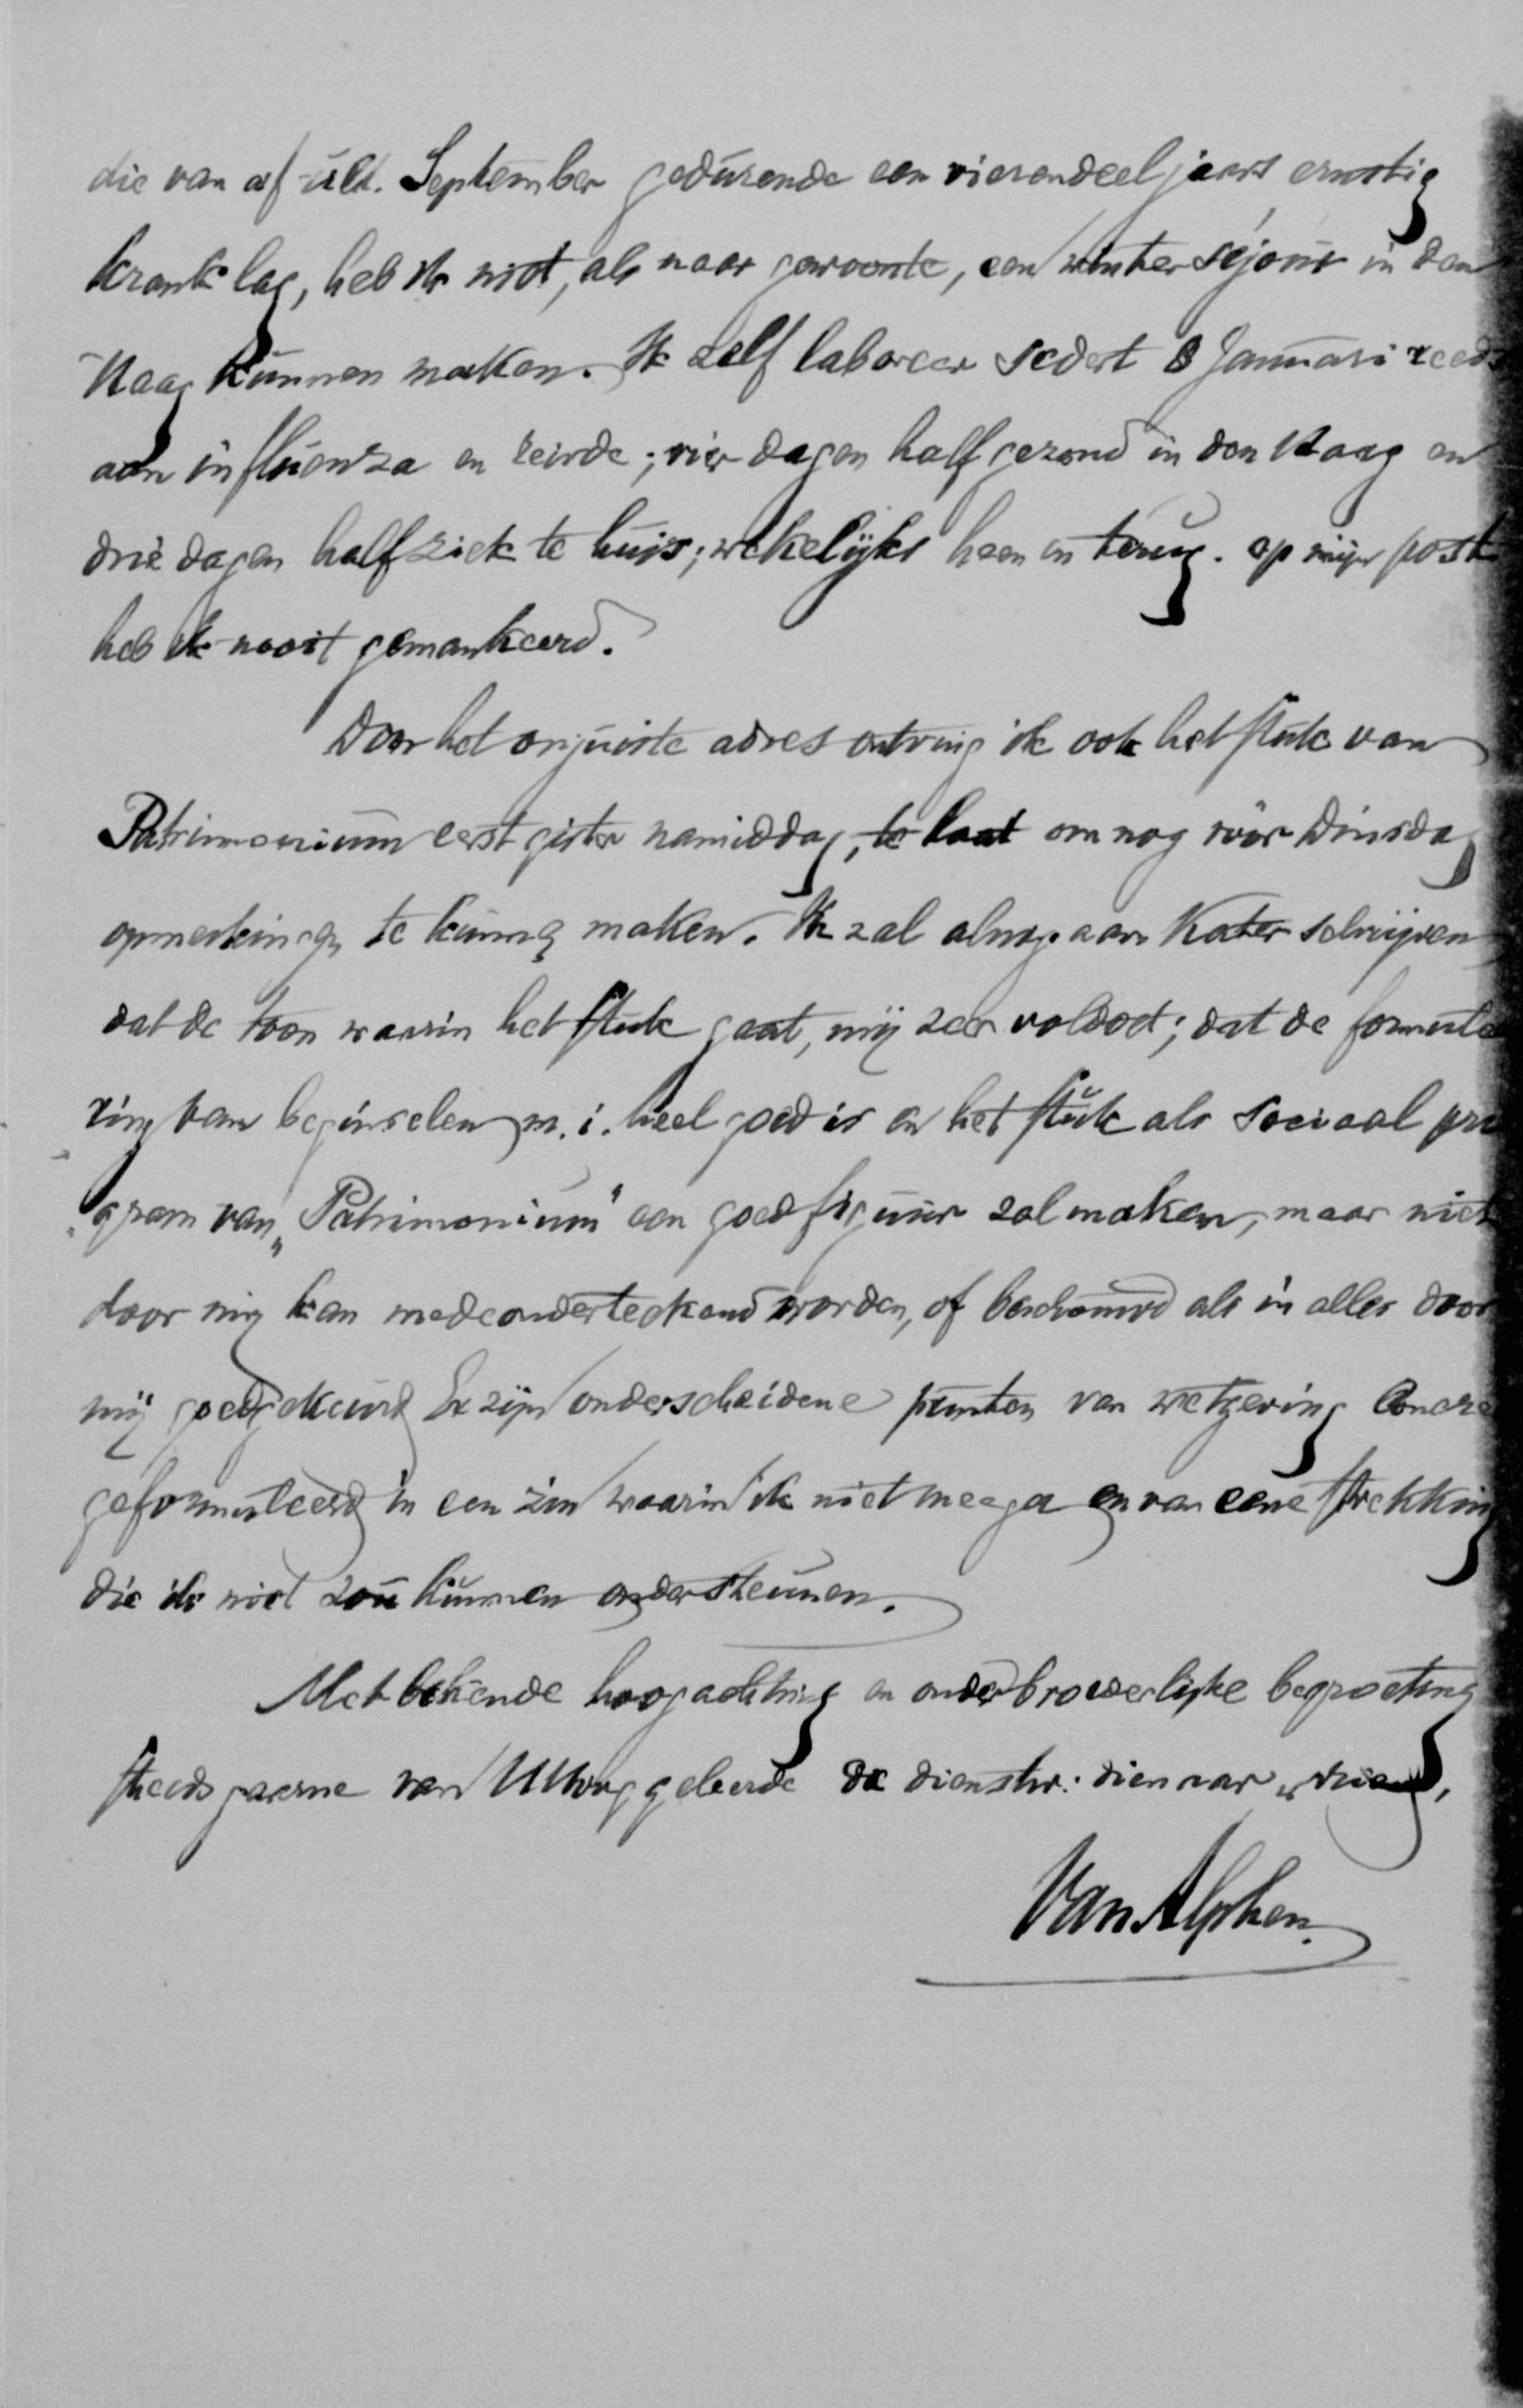 die van af ult. September gedurende een vierendeel jaars ernstig
krank lag, heb ik niet, als naar gewoonte, een winter séjour in den
Haag kunnen maken. Ik zelf laboreer sedert 8 Januari reeds
aan influenza en reisde; vier dagen half gezond in den Haag en
drie dagen half ziek te huis; wekelijks heen en terug. op mijn post
heb ik nooit gemankeerd.
Door het onjuiste adres ontving ik ook het stuk van
Patrimonium eerst gister namiddag, te laat om nog vóór Dinsdag
opmerkingen te kunnen maken. Ik zal alnog aan Kater schrijven
dat de toon waarin het stuk gaat, mij zeer voldoet; dat de formule
ring van beginselen m. i. heel goed is en het stuk als sociaal pro
gram van „Patrimonium" een goed figuur zal maken, maar niet
door mij kan medeonderteekend worden, of beschouwd als in alles door
mij goedgekeurd Er zijn onderscheidene punten van wetgeving concre
geformuleerd in een zin waarin ik niet meega en van eene strekking
die ik niet zou kunnen ondersteunen.
Met bekende hoogachting en onder broederlijke begroeting
steeds gaerne van UHooggeleerde de dienstw: dienaar en vriend,
Van Alphen.